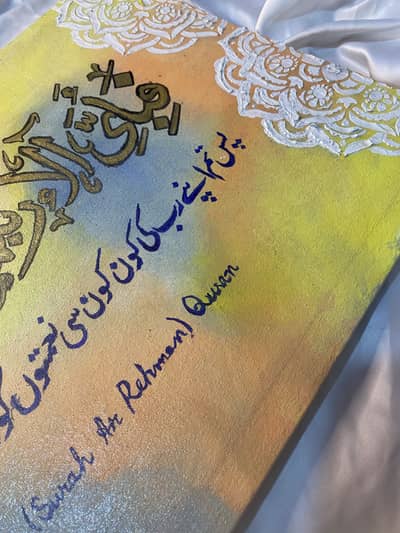 فبأي آلاء
پس تم اپنے رب کی کون کون سی نعمتوں کو
(Surah Ar Rehman) Quran